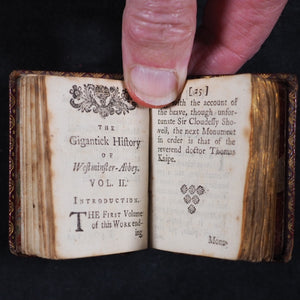 THE
Gigantick History
OF
Westminster-Abbey.
VOL. II.
INTRODUCTION.
THE First Volume
of this Work end-
ing
[25]
with the account of
the brave, though unfor-
tunate Sir Cloudesly Sho-
vell, the next Monument
in order is that of the
reverend doctor Thomas
Knipe.
Monu-